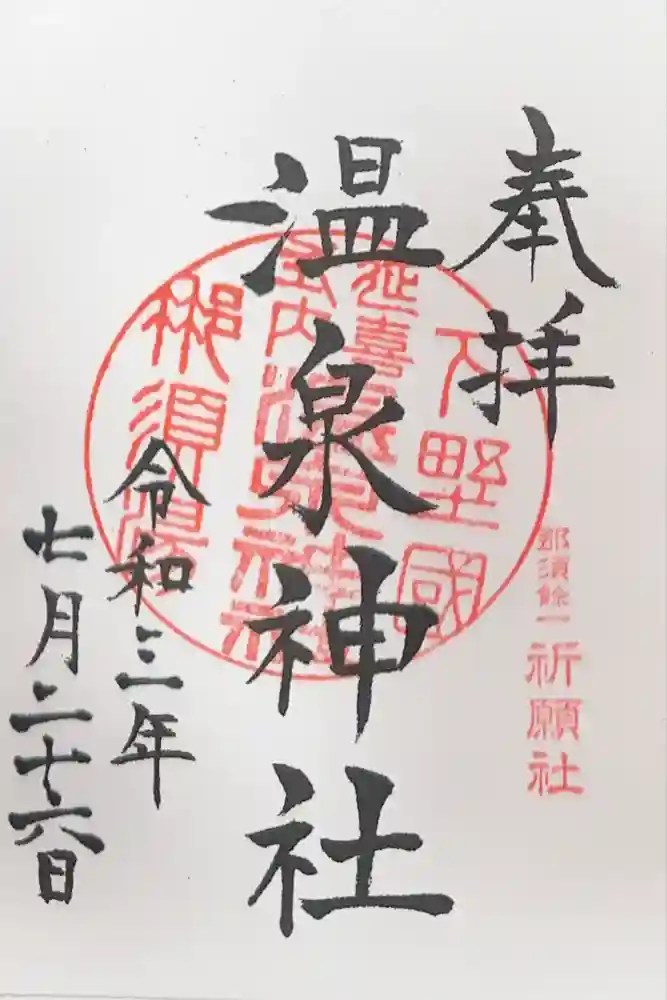 奉拝
那須余一祈願社
下野國
延喜式内
温泉神社
温泉神社
那須湯
令和三年
七月二十六日